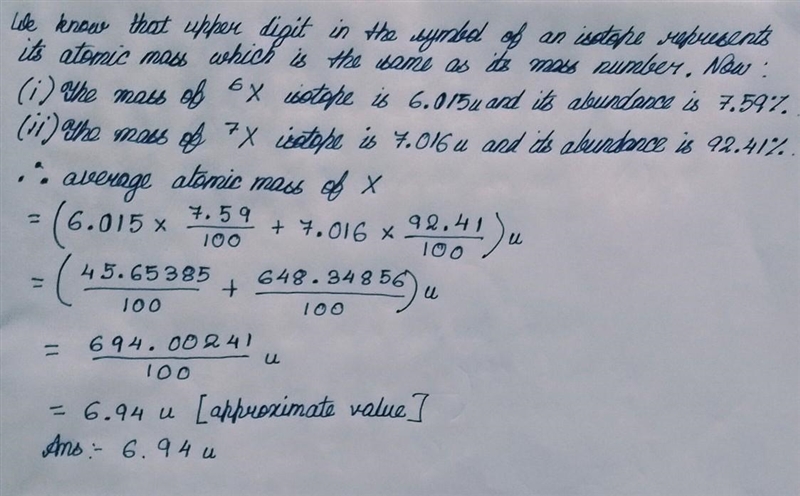 We know that upper digit in the symbol of an isotope represents
its atomic mass which is the same as its mass number. Now:
(i) The mass of ⁶X isotope is 6.015u and its abundance is 7.59%.
(ii) The mass of ⁷X isotope is 7.016 u and its abundance is 92.41%.
∴ average atomic mass of X
= (6.015 × 7.59/100 + 7.016 × 92.41/100) u
= (45.65385/100 + 648.34856/100) u
= 694.00241/100 u
= 6.94 u [approximate value]
Ans:- 6.94 u